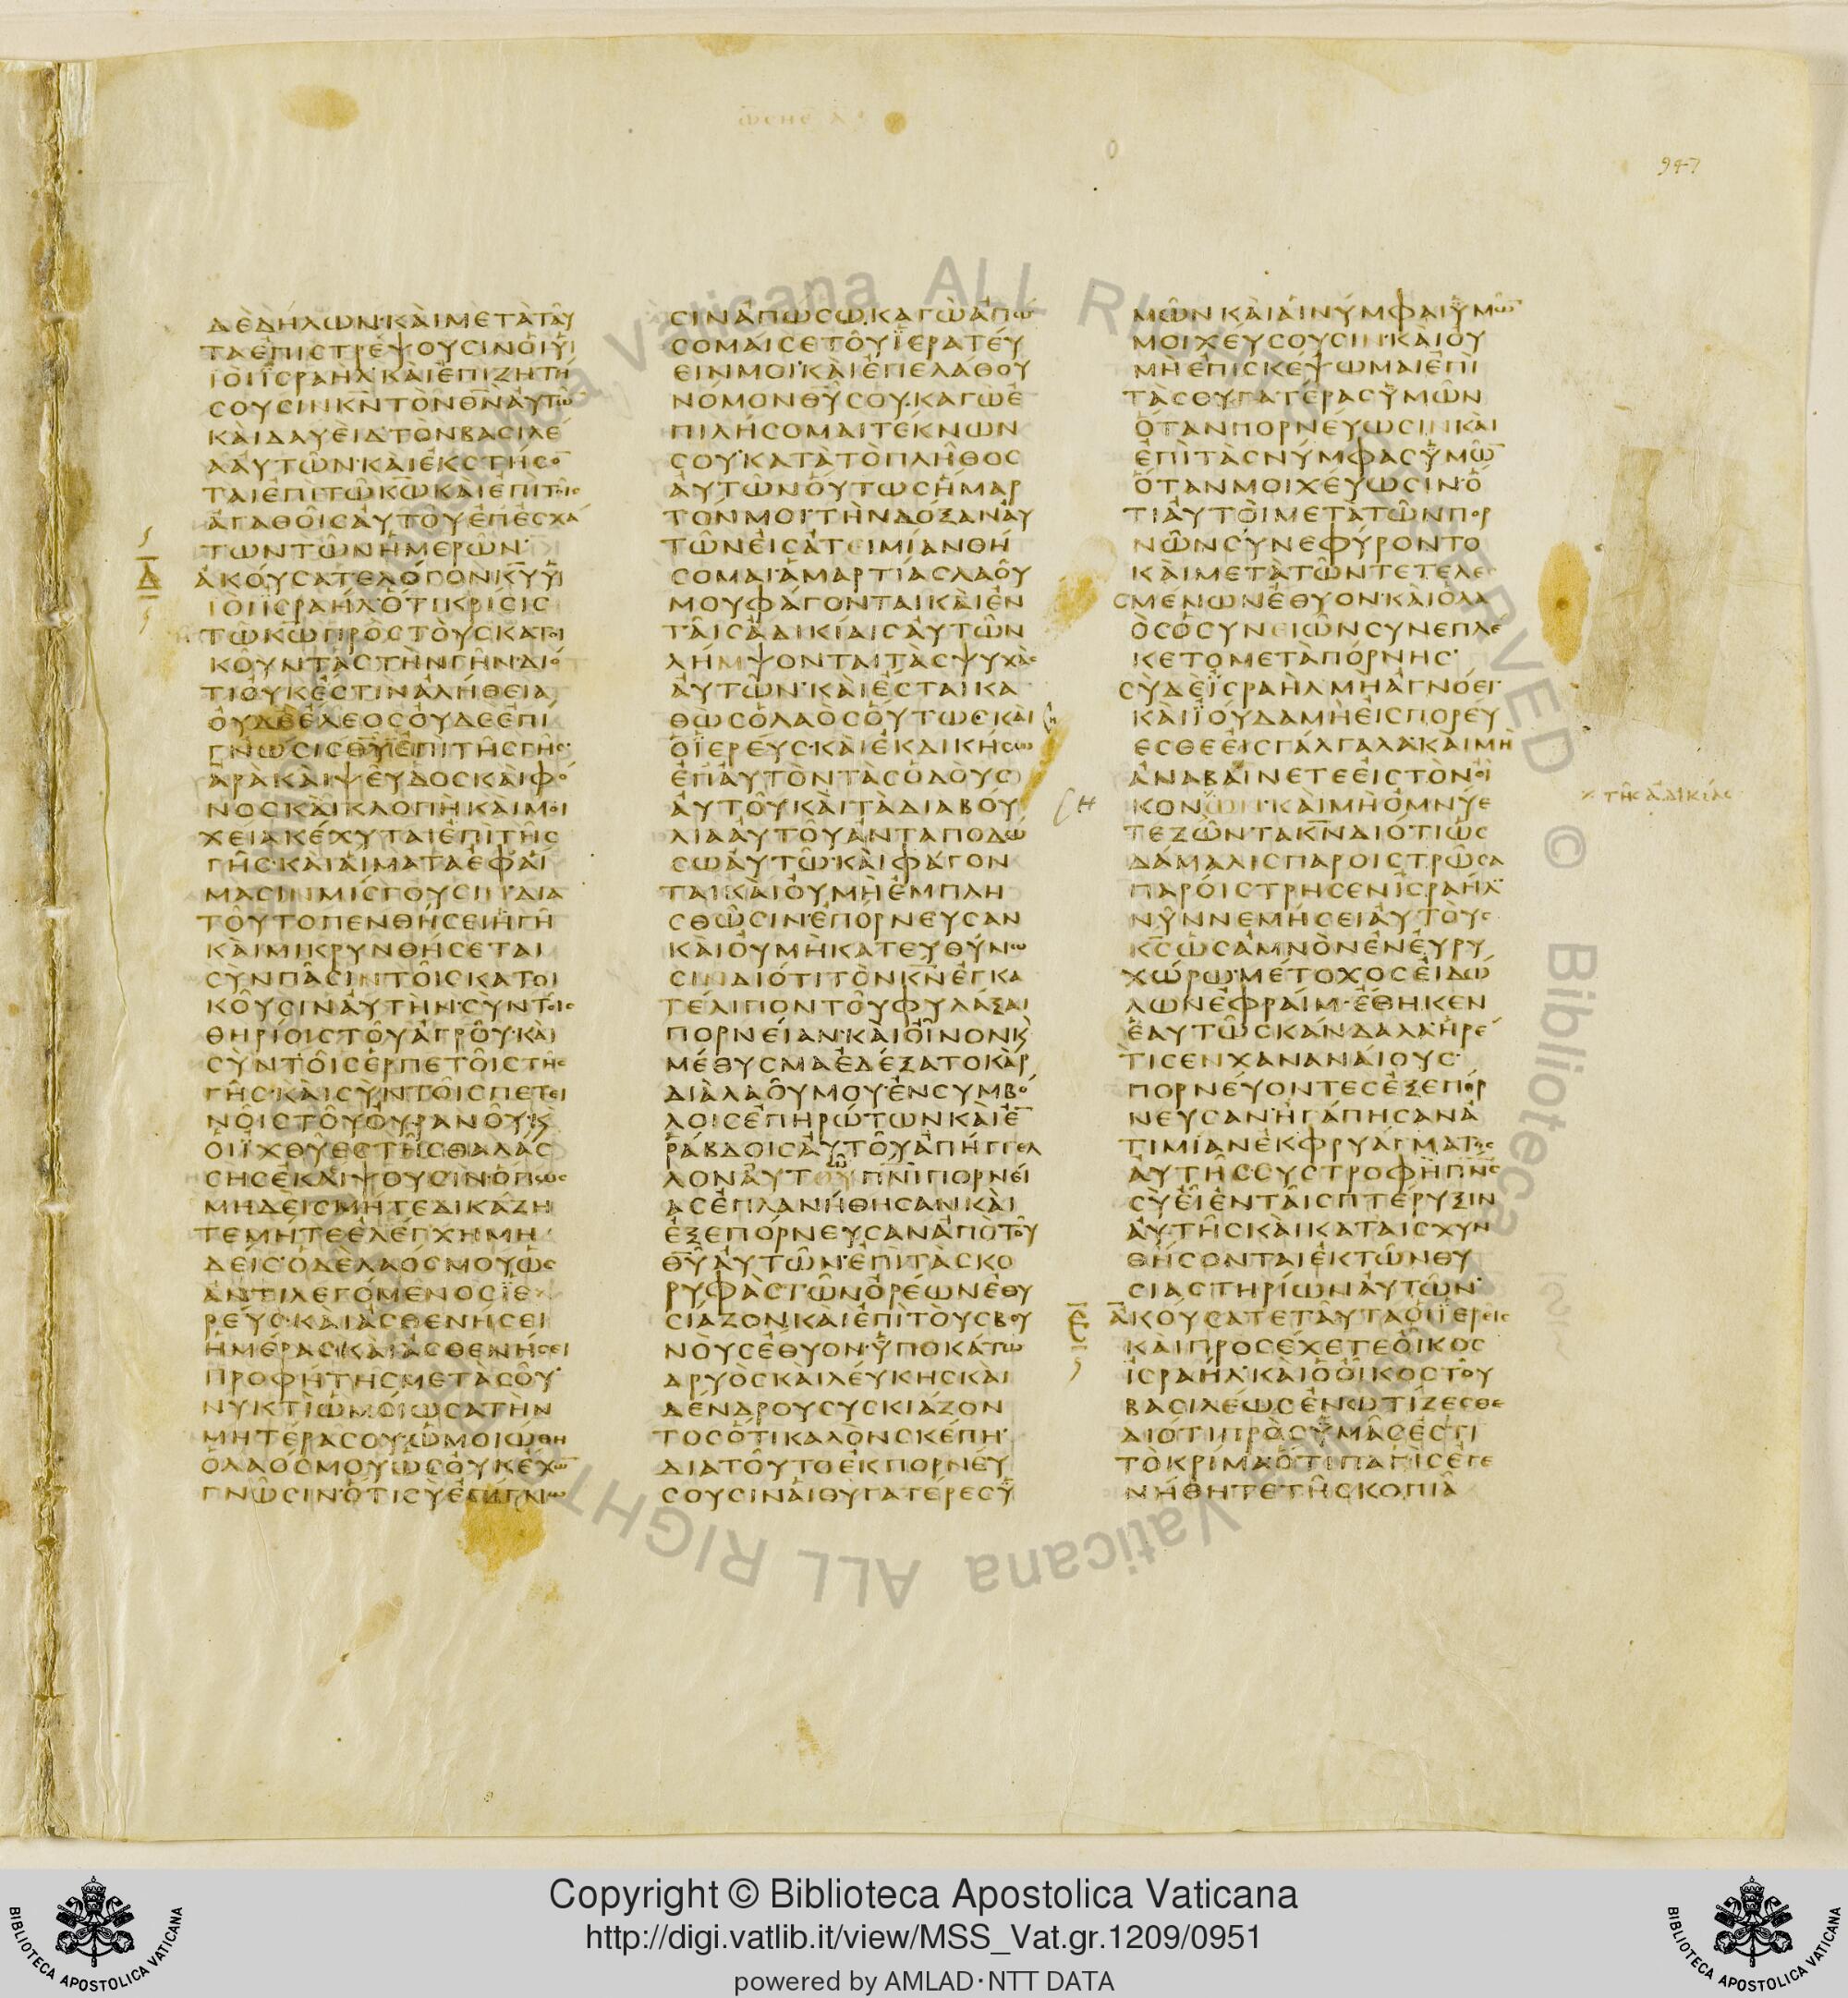 ωσηε λ
947
ΔΕ ΔΗΛΩΝ· ΚΑΙ ΜΕΤΑ ΤΑΥ
ΤΑ ΕΠΙΣΤΡΕΨΟΥΣΙΝ ΟΙ ΥΙ
ΟΙ ΙΣΡΑΗΛ· ΚΑΙ ΕΠΙΖΗΤΗ
ΣΟΥΣΙΝ Κ̅Ν̅ ΤΟΝ Θ̅Ν̅ ΑΥΤΩ̅
ΚΑΙ ΔΑΥΕΙΔ ΤΟΝ ΒΑΣΙΛΕ
Α ΑΥΤΩΝ· ΚΑΙ ΕΚΣΤΗΣΟ̅
ΤΑΙ ΕΠΙ ΤΩ Κ̅Ω̅ ΚΑΙ ΕΠΙ ΤΟΙΣ
ΑΓΑΘΟΙΣ ΑΥΤΟΥ ΕΠ ΕΣΧΑ
ΤΩΝ ΤΩΝ ΗΜΕΡΩΝ·
Δ̅ ΑΚΟΥΣΑΤΕ ΛΟΓΟΝ Κ̅Υ̅ ΥΙ
ΟΙ ΙΣΡΑΗΛ· ΟΤΙ ΚΡΙΣΙΣ
ΤΩ Κ̅Ω̅ ΠΡΟΣ ΤΟΥΣ ΚΑΤΟΙ
ΚΟΥΝΤΑΣ ΤΗΝ ΓΗΝ· ΔΙΟ
ΤΙ ΟΥΚ ΕΣΤΙΝ ΑΛΗΘΕΙΑ
ΟΥΔΕ ΕΛΕΟΣ ΟΥΔΕ ΕΠΙ
ΓΝΩΣΙΣ Θ̅Υ̅ ΕΠΙ ΤΗΣ ΓΗΣ·
ΑΡΑ ΚΑΙ ΨΕΥΔΟΣ ΚΑΙ ΦΟ
ΝΟΣ ΚΑΙ ΚΛΟΠΗ ΚΑΙ ΜΟΙ
ΧΕΙΑ ΚΕΧΥΤΑΙ ΕΠΙ ΤΗΣ
ΓΗΣ· ΚΑΙ ΑΙΜΑΤΑ ΕΦ ΑΙ
ΜΑΣΙΝ ΜΙΣΓΟΥΣΙΝ· ΔΙΑ
ΤΟΥΤΟ ΠΕΝΘΗΣΕΙ Η ΓΗ
ΚΑΙ ΜΙΚΡΥΝΘΗΣΕΤΑΙ
ΣΥΝ ΠΑΣΙΝ ΤΟΙΣ ΚΑΤΟΙ
ΚΟΥΣΙΝ ΑΥΤΗΝ· ΣΥΝ ΤΟΙΣ
ΘΗΡΙΟΙΣ ΤΟΥ ΑΓΡΟΥ· ΚΑΙ
ΣΥΝ ΤΟΙΣ ΕΡΠΕΤΟΙΣ ΤΗΣ
ΓΗΣ· ΚΑΙ ΣΥΝ ΤΟΙΣ ΠΕΤΕΙ
ΝΟΙΣ ΤΟΥ ΟΥΡΑΝΟΥ· Κ
ΟΙ ΙΧΘΥΕΣ ΤΗΣ ΘΑΛΑΣ
ΣΗΣ ΕΚΛΙΨΟΥΣΙΝ· ΟΠΩΣ
ΜΗΔΕΙΣ ΜΗΤΕ ΔΙΚΑΖΗ
ΤΕ ΜΗΤΕ ΕΛΕΓΧΗ ΜΗ
ΔΕΙΣ· Ο ΔΕ ΛΑΟΣ ΜΟΥ ΩΣ
ΑΝΤΙΛΕΓΟΜΕΝΟΣ ΙΕ
ΡΕΥΣ· ΚΑΙ ΑΣΘΕΝΗΣΕΙ
ΗΜΕΡΑΣ· ΚΑΙ ΑΣΘΕΝΗΣΕΙ
ΠΡΟΦΗΤΗΣ ΜΕΤΑ ΣΟΥ·
ΝΥΚΤΙ ΩΜΟΙΩΣΑ ΤΗΝ
ΜΗΤΕΡΑ ΣΟΥ· ΩΜΟΙΩΘΗ
Ο ΛΑΟΣ ΜΟΥ ΩΣ ΟΥΚ ΕΧΩ̅
ΓΝΩΣΙΝ· ΟΤΙ ΣΥ ΕΠΙΓΝΩ
ΣΙΝ ΑΠΩΣΩ· ΚΑΓΩ ΑΠΩ
ΣΟΜΑΙ ΣΕ ΤΟΥ ΙΕΡΑΤΕΥ
ΕΙΝ ΜΟΙ· ΚΑΙ ΕΠΕΛΑΘΟΥ
ΝΟΜΟΝ Θ̅Υ̅ ΣΟΥ· ΚΑΓΩ Ε
ΠΙΛΗΣΟΜΑΙ ΤΕΚΝΩΝ
ΣΟΥ· ΚΑΤΑ ΤΟ ΠΛΗΘΟΣ
ΑΥΤΩΝ ΟΥΤΩΣ ΗΜΑΡ
ΤΟΝ ΜΟΙ· ΤΗΝ ΔΟΞΑΝ ΑΥ
ΤΩΝ ΕΙΣ ΑΤΕΙΜΙΑΝ ΘΗ
ΣΟΜΑΙ· ΑΜΑΡΤΙΑΣ ΛΑΟΥ
ΜΟΥ ΦΑΓΟΝΤΑΙ ΚΑΙ ΕΝ
ΤΑΙΣ ΑΔΙΚΙΑΙΣ ΑΥΤΩΝ
ΛΗΜΨΟΝΤΑΙ ΤΑΣ ΨΥΧΑΣ
ΑΥΤΩΝ· ΚΑΙ ΕΣΤΑΙ ΚΑ
ΘΩΣ Ο ΛΑΟΣ ΟΥΤΩΣ ΚΑΙ
Ο ΙΕΡΕΥΣ· ΚΑΙ ΕΚΔΙΚΗΣΩ
ΕΠ ΑΥΤΟΝ ΤΑΣ ΟΔΟΥΣ
ΑΥΤΟΥ ΚΑΙ ΤΑ ΔΙΑΒΟΥ
ΛΙΑ ΑΥΤΟΥ ΑΝΤΑΠΟΔΩ
ΣΩ ΑΥΤΩ· ΚΑΙ ΦΑΓΟΝ
ΤΑΙ ΚΑΙ ΟΥ ΜΗ ΕΜΠΛΗ
ΣΘΩΣΙΝ· ΕΠΟΡΝΕΥΣΑΝ
ΚΑΙ ΟΥ ΜΗ ΚΑΤΕΥΘΥΝΩ
ΣΙΝ ΔΙΟΤΙ ΤΟΝ Κ̅Ν̅ ΕΓΚΑ
ΤΕΛΙΠΟΝ ΤΟΥ ΦΥΛΑΞΑΙ
ΠΟΡΝΕΙΑΝ· ΚΑΙ ΟΙΝΟΝ Κ
ΜΕΘΥΣΜΑ ΕΔΕΞΑΤΟ ΚΑΡ
ΔΙΑ ΛΑΟΥ ΜΟΥ· ΕΝ ΣΥΜΒΟ
ΛΟΙΣ ΕΠΗΡΩΤΩΝ ΚΑΙ Ε̅
ΡΑΒΔΟΙΣ ΑΥΤΟΥ ΑΠΗΓΓΕΛ
ΛΟΝ ΑΥΤΟΥ Π̅Ν̅Ι̅ ΠΟΡΝΕΙ
ΑΣ ΕΠΛΑΝΗΘΗΣΑΝ ΚΑΙ
ΕΞΕΠΟΡΝΕΥΣΑΝ ΑΠΟ ΤΟΥ
Θ̅Υ̅ ΑΥΤΩΝ· ΕΠΙ ΤΑΣ ΚΟ
ΡΥΦΑΣ ΤΩΝ ΟΡΕΩΝ ΕΘΥ
ΣΙΑΖΟΝ ΚΑΙ ΕΠΙ ΤΟΥΣ ΒΟΥ
ΝΟΥΣ ΕΘΥΟΝ· ΥΠΟΚΑΤΩ
ΔΡΥΟΣ ΚΑΙ ΛΕΥΚΗΣ ΚΑΙ
ΔΕΝΔΡΟΥ ΣΥΣΚΙΑΖΟΝ
ΤΟΣ ΟΤΙ ΚΑΛΟΝ ΣΚΕΠΗ·
ΔΙΑ ΤΟΥΤΟ ΕΚΠΟΡΝΕΥ
ΣΟΥΣΙΝ ΑΙ ΘΥΓΑΤΕΡΕΣ Υ
ΜΩΝ ΚΑΙ ΑΙ ΝΥΜΦΑΙ ΥΜΩ̅
ΜΟΙΧΕΥΣΟΥΣΙΝ· ΚΑΙ ΟΥ
ΜΗ ΕΠΙΣΚΕΨΩΜΑΙ ΕΠΙ
ΤΑΣ ΘΥΓΑΤΕΡΑΣ ΥΜΩΝ
ΟΤΑΝ ΠΟΡΝΕΥΩΣΙΝ ΚΑΙ
ΕΠΙ ΤΑΣ ΝΥΜΦΑΣ ΥΜΩ̅
ΟΤΑΝ ΜΟΙΧΕΥΩΣΙΝ· Ο
ΤΙ ΑΥΤΟΙ ΜΕΤΑ ΤΩΝ ΠΟΡ
ΝΩΝ ΣΥΝΕΦΥΡΟΝΤΟ
ΚΑΙ ΜΕΤΑ ΤΩΝ ΤΕΤΕΛΕ
ΣΜΕΝΩΝ ΕΘΥΟΝ· ΚΑΙ Ο ΛΑ
ΟΣ Ο ΣΥΝΕΙΩΝ ΣΥΝΕΠΛΕ
ΚΕΤΟ ΜΕΤΑ ΠΟΡΝΗΣ·
ΣΥ ΔΕ ΙΣΡΑΗΛ ΜΗ ΑΓΝΟΕΙ
ΚΑΙ ΙΟΥΔΑ ΜΗ ΕΙΣΠΟΡΕΥ
ΕΣΘΕ ΕΙΣ ΓΑΛΓΑΛΑ· ΚΑΙ ΜΗ
ΑΝΑΒΑΙΝΕΤΕ ΕΙΣ ΤΟΝ ΟΙ
ΚΟΝ ΩΝ· ΚΑΙ ΜΗ ΟΜΝΥΕ
· ΤΗΣ ΑΔΙΚΙΑΣ
ΤΕ ΖΩΝΤΑ Κ̅Ν̅ ΔΙΟΤΙ ΩΣ
ΔΑΜΑΛΙΣ ΠΑΡΟΙΣΤΡΩΣΑ
ΠΑΡΟΙΣΤΡΗΣΕΝ ΙΣΡΑΗΛ·
ΝΥΝ ΝΕΜΗΣΕΙ ΑΥΤΟΥΣ
Κ̅Σ̅ ΩΣ ΑΜΝΟΝ ΕΝ ΕΥΡΥ
ΧΩΡΩ· ΜΕΤΟΧΟΣ ΕΙΔΩ
ΛΩΝ ΕΦΡΑΙΜ· ΕΘΗΚΕΝ
ΕΑΥΤΩ ΣΚΑΝΔΑΛΑ· ΗΡΕ
ΤΙΣΕΝ ΧΑΝΑΝΑΙΟΥΣ·
ΠΟΡΝΕΥΟΝΤΕΣ ΕΞΕΠΟΡ
ΝΕΥΣΑΝ· ΗΓΑΠΗΣΑΝ Α
ΤΙΜΙΑΝ ΕΚ ΦΡΥΑΓΜΑΤΟΣ
ΑΥΤΗΣ ΣΥΣΤΡΟΦΗ Π̅Ν̅Σ̅
ΣΥ ΕΙ ΕΝ ΤΑΙΣ ΠΤΕΡΥΞΙΝ
ΑΥΤΗΣ ΚΑΙ ΚΑΤΑΙΣΧΥΝ
ΘΗΣΟΝΤΑΙ ΕΚ ΤΩΝ ΘΥ
ΣΙΑΣΤΗΡΙΩΝ ΑΥΤΩΝ·
Ε̅ ΑΚΟΥΣΑΤΕ ΤΑΥΤΑ ΟΙ ΙΕΡΕΙΣ
ΚΑΙ ΠΡΟΣΕΧΕΤΕ ΟΙΚΟΣ
ΙΣΡΑΗΛ· ΚΑΙ Ο ΟΙΚΟΣ ΤΟΥ
ΒΑΣΙΛΕΩΣ ΕΝΩΤΙΖΕΣΘΕ
ΔΙΟΤΙ ΠΡΟΣ ΥΜΑΣ ΕΣΤΙ
ΤΟ ΚΡΙΜΑ ΟΤΙ ΠΑΓΙΣ ΕΓΕ
ΝΗΘΗΤΕ ΤΗ ΣΚΟΠΙΑ
Copyright © Biblioteca Apostolica Vaticana
http://digi.vatlib.it/view/MSS_Vat.gr.1209/0951
powered by AMLAD·NTT DATA
BIBLIOTECA APOSTOLICA VATICANA
BIBLIOTECA APOSTOLICA VATICANA